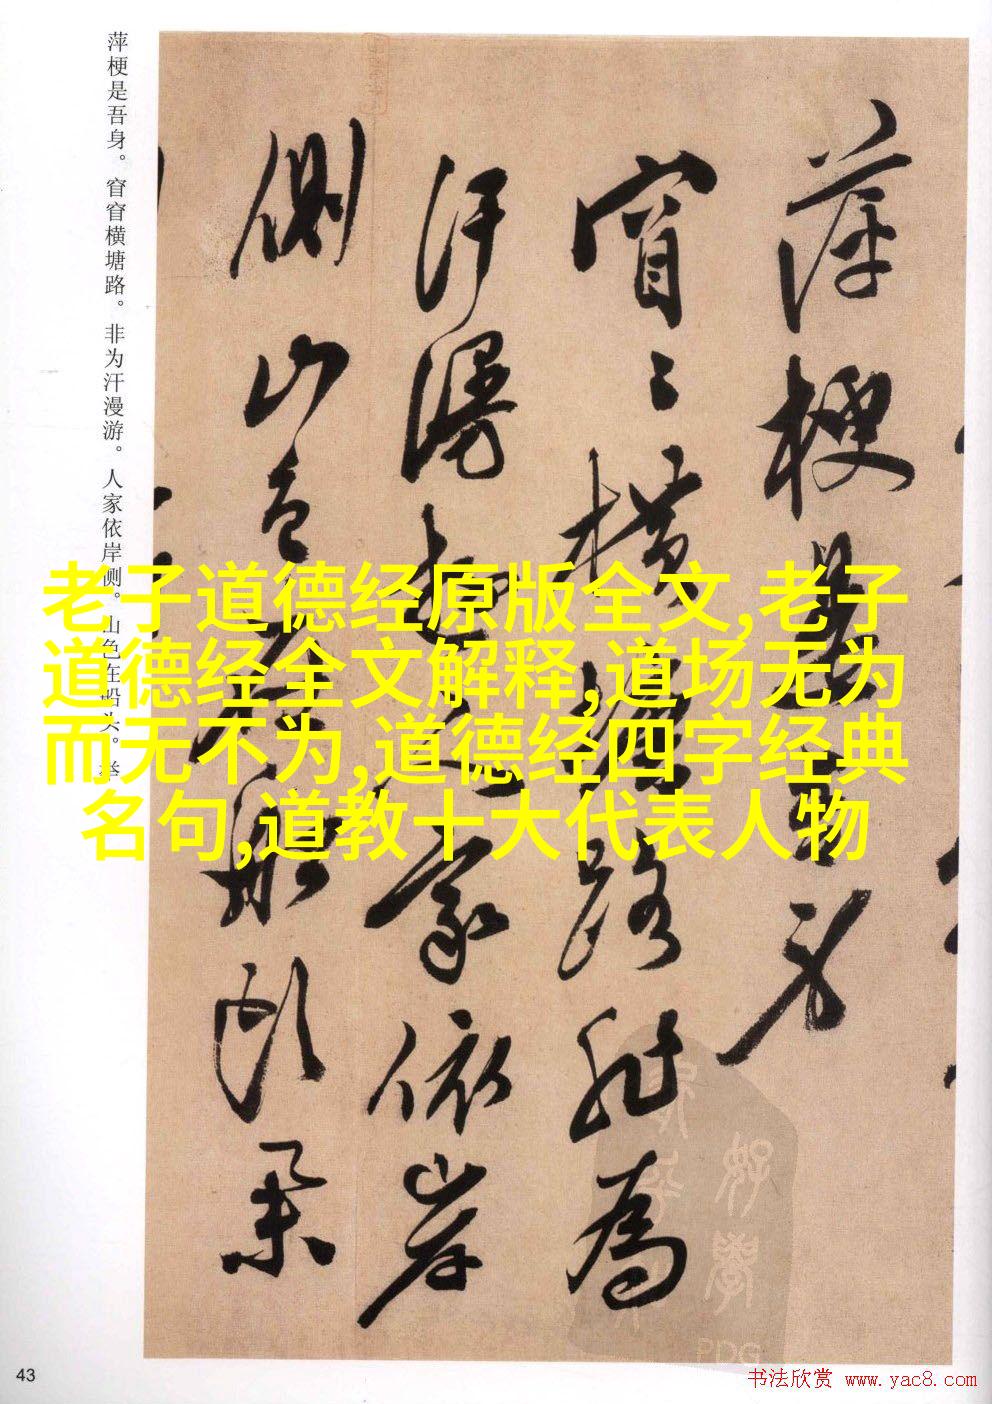 萍梗是吾身。窅窅横塘路。非为汗漫游。人家依岸侧。山色在船头。举
萍梗是吾身
窅〻橫塘路非為
汗漫遊人家依岸
側山色在船頭
老子道德经原版全文,老子
道德经全文解释,道场无为
而无不为,道德经四字经典
名句,道教十大代表人物
PDG
43
书法欣赏 www.yac8.com